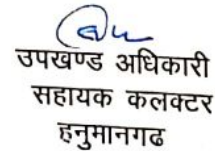 उपखण्ड अधिकारी
सहायक कलक्टर
हनुमानगढ